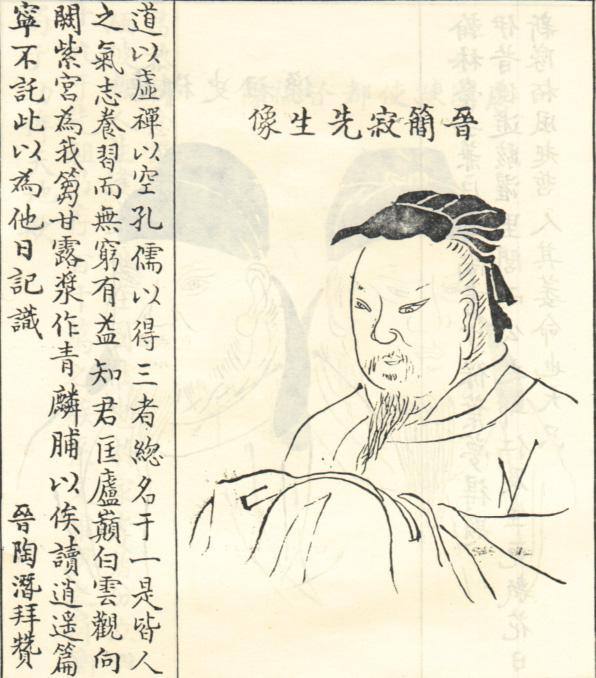 晉簡寂先生像
道以虛禪以空孔儒以得三者緫名于一是皆人
之氣志養習而無窮有益知君匡廬巔白雲觀向
闕紫宮為我篘甘露漿作青麟脯以俟讀逍遥篇
寧不託此以為他日記識
晉陶潛拜贊